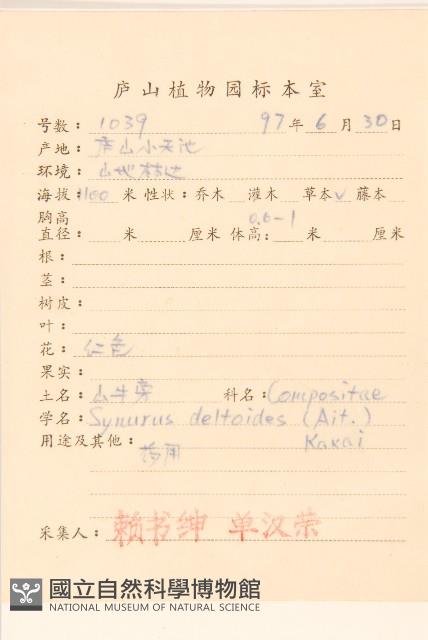 庐山植物园标本室
号数: 1039 97年6月30日
产地: 庐山小天池
环境: 山地林边
海拔: 1100 米 性状: 乔木 灌木 草本√ 藤本
胸高 0.6-1
直径: 米 厘米 体高: 米 厘米
根:
茎:
树皮:
叶:
花: 红色
果实:
土名: 山牛蒡 科名: Compositae
学名: Synurus deltoides (Ait.)
用途及其他: 药用 Kakai
采集人: 赖书绅 单汉荣
國立自然科學博物館
NATIONAL MUSEUM OF NATURAL SCIENCE